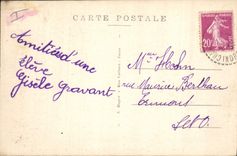 CARTE POSTALE
Amitiés d'une
élève
Gisèle Gravant
Mme
rue Maurice Berthau
Ermont
S et O.
20